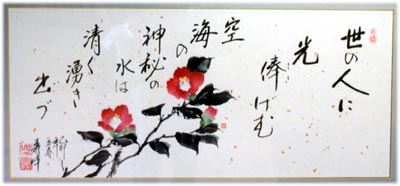 世の人に
光
俸げむ
空
海の
神秘の
水は
清く
湧き
出づ